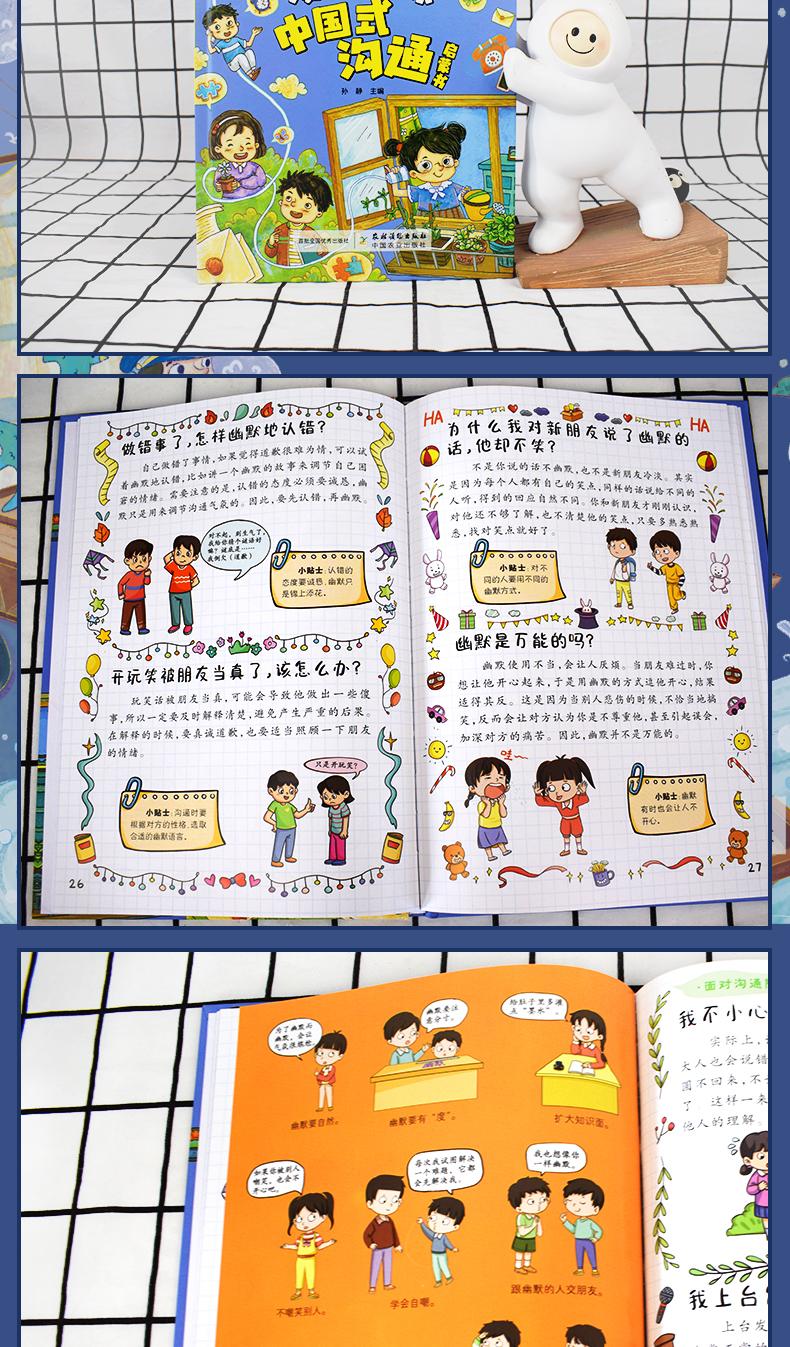 中国式
沟通
启蒙书
孙 静 主编
首批全国优秀出版社
农村读物出版社
中国农业出版社
做错事了，怎样幽默地认错？
自己做错了事情，如果觉得道歉很难为情，可以试
着幽默地认错，比如讲一个幽默的故事来调节自己困
窘的情绪。需要注意的是，认错的态度必须要诚恳，幽
默只是用来调节沟通气氛的。因此，要先认错，再幽默。
对不起，别生气了，
我给你猜个谜语好
嘛？谜底是……
我倒欠（道歉）
小贴士：认错的
态度要诚恳，幽默只
是锦上添花。
开玩笑被朋友当真了，该怎么办？
玩笑话被朋友当真，可能会导致他做出一些傻
事，所以一定要及时解释清楚，避免产生严重的后果。
在解释的时候，要真诚道歉，也要适当照顾一下朋友
的情绪。
只是开玩笑？
小贴士：沟通时要
根据对方的性格，选取
合适的幽默语言。
26
HA
HA
为什么我对新朋友说了幽默的
话，他却不笑？
不是你说的话不幽默，也不是新朋友冷淡。其实
是因为每个人都有自己的笑点，同样的话说给不同的
人听，得到的回应自然不同。你和新朋友才刚刚认识，
对他还不够了解，也不清楚他的笑点，只要多熟悉熟
悉，找对笑点就好了。
小贴士：对不
同的人要用不同的
幽默方式。
幽默是万能的吗？
幽默使用不当，会让人厌烦。当朋友难过时，你
想让他开心起来，于是用幽默的方式逗他开心，结果
适得其反。这是因为当别人悲伤的时候，不恰当地搞
笑，反而会让对方认为你是不尊重他，甚至引起误会，
加深对方的痛苦。因此，幽默并不是万能的。
哇~
小贴士：幽默
有时也会让人不
开心。
27
为了幽默而
幽默，会让
气氛很尴尬。
幽默要自然。
幽默要注
意分寸。
幽默要有“度”。
给肚子里多灌
点“墨水”。
扩大知识面。
如果你被别人
嘲笑，也会不
开心吧。
不嘲笑别人。
每次我试图解决
一个难题，它都
会先解决我。
学会自嘲。
我也想像你
一样幽默。
跟幽默的人交朋友。
·面对沟通
我不小心
实际上，
大人也会说错
围不回来，不
了 这样一来
他人的理解。
我上台
上台发